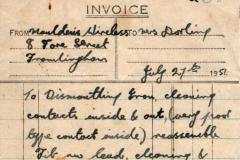 INVOICE
FROM Moulden's Wireless TO Mrs Dorling
8 Fore Street
Framlingham
July 27th 195
To Dismantling Iron, cleaning
contacts inside & out, (very poor
type contact inside) reassemble
Fit new lead, cleaning &